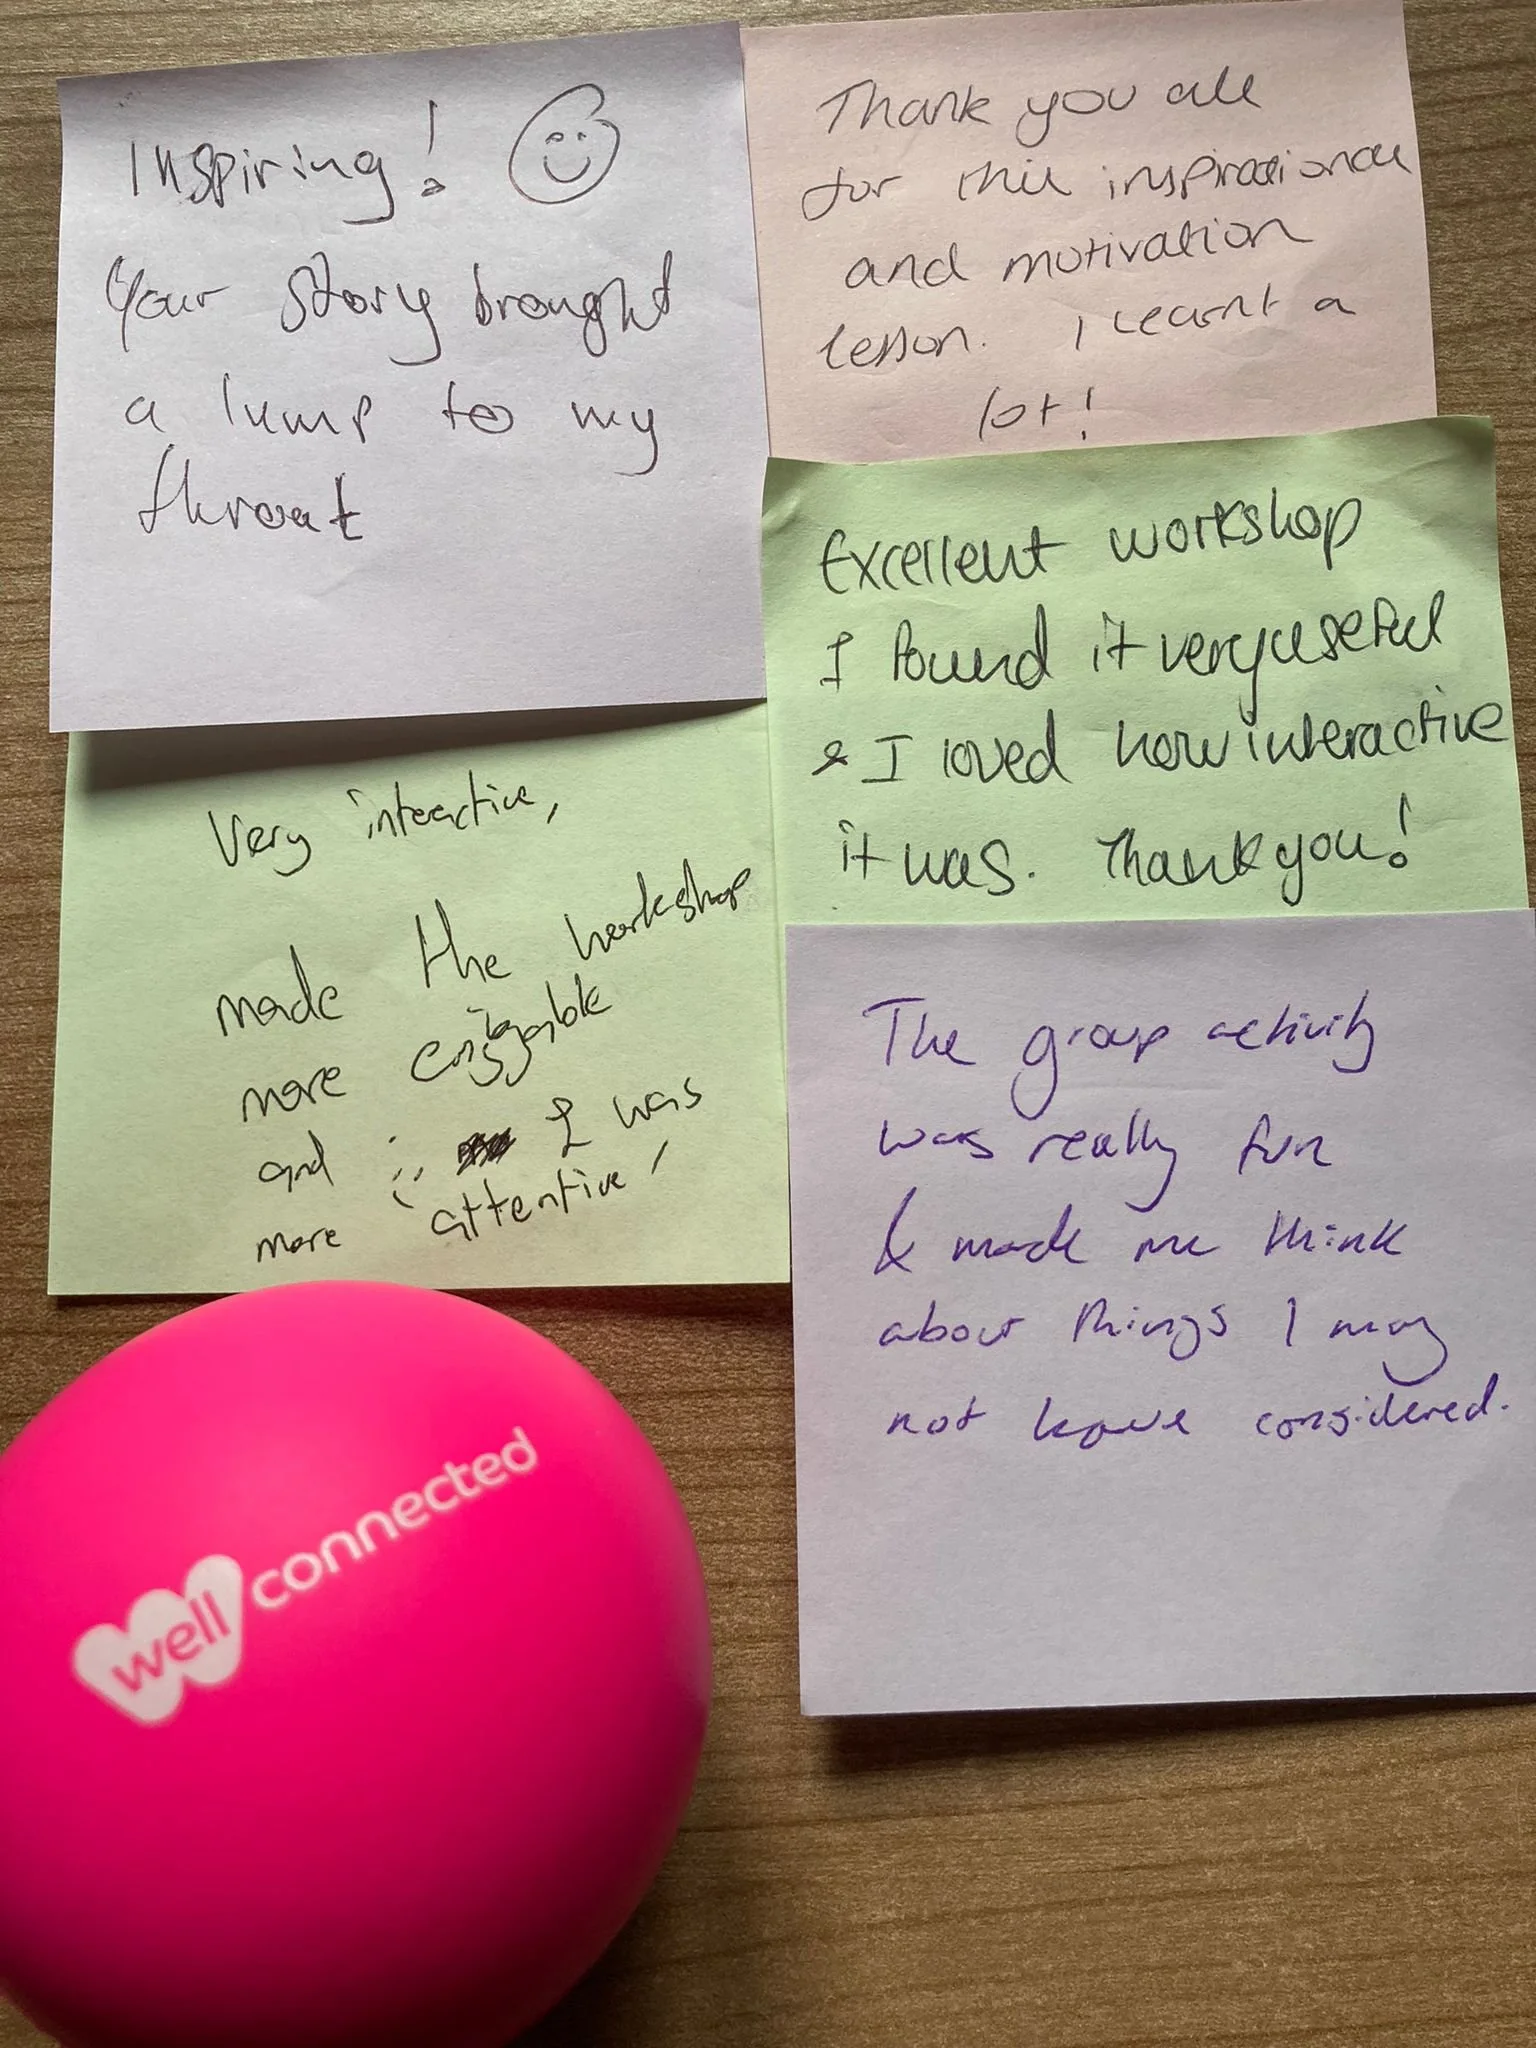 Inspiring!
Your story brought
a lump to my
throat
Thank you all
for this inspirational
and motivation
lesson. I learnt a
lot!
Excellent workshop
I found it very useful
& I loved how interactive
it was. Thank you!
Very interactive,
made the workshop
more enjoyable
and I was
more attentive!
The group activity
was really fun
& made me think
about things I may
not have considered.
well connected